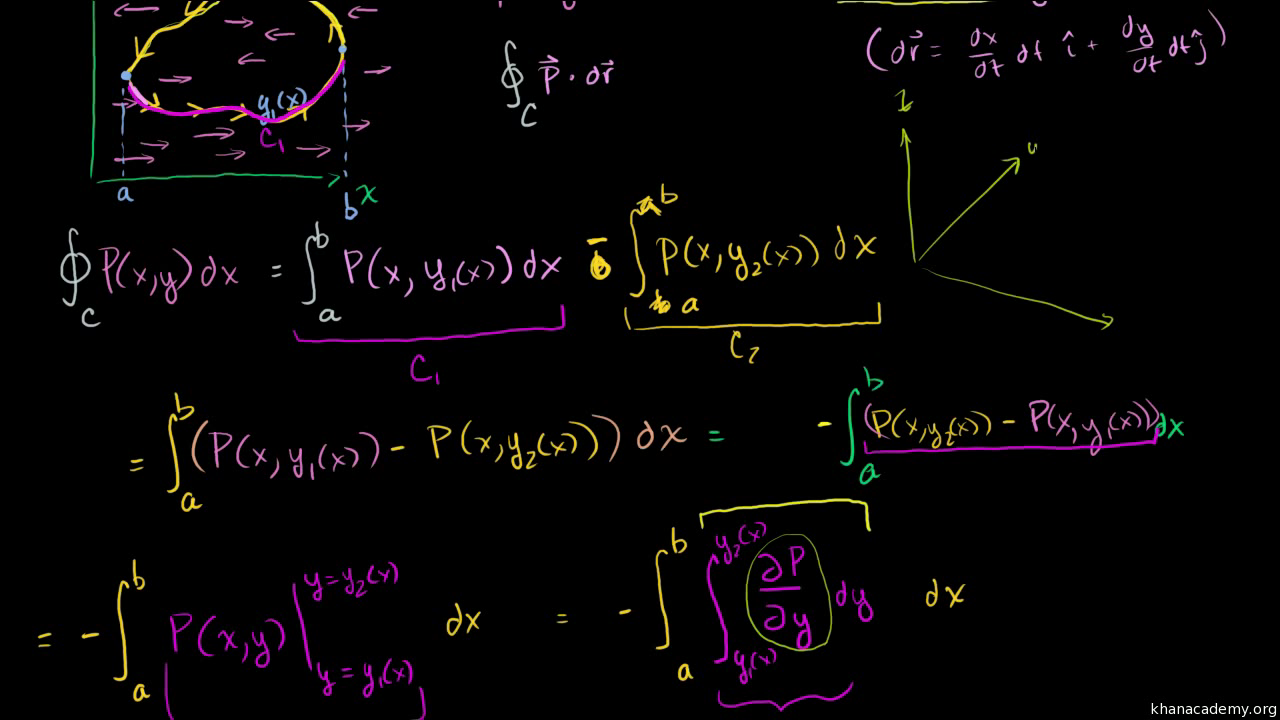 (dr⃗ = dx/dt dt î + dy/dt dt ĵ)
∮_C P⃗ · dr⃗
y₁(x)
C₁
a
b
x
∮_C P(x,y) dx = ∫_a^b P(x, y₁(x)) dx - ∫_a^b P(x, y₂(x)) dx
C₁
C₂
= ∫_a^b (P(x, y₁(x)) - P(x, y₂(x))) dx = - ∫_a^b (P(x, y₂(x)) - P(x, y₁(x))) dx
= - ∫_a^b P(x,y) |_{y = y₁(x)}^{y = y₂(x)} dx = - ∫_a^b ∫_{y₁(x)}^{y₂(x)} ∂P/∂y dy dx
khanacademy.org